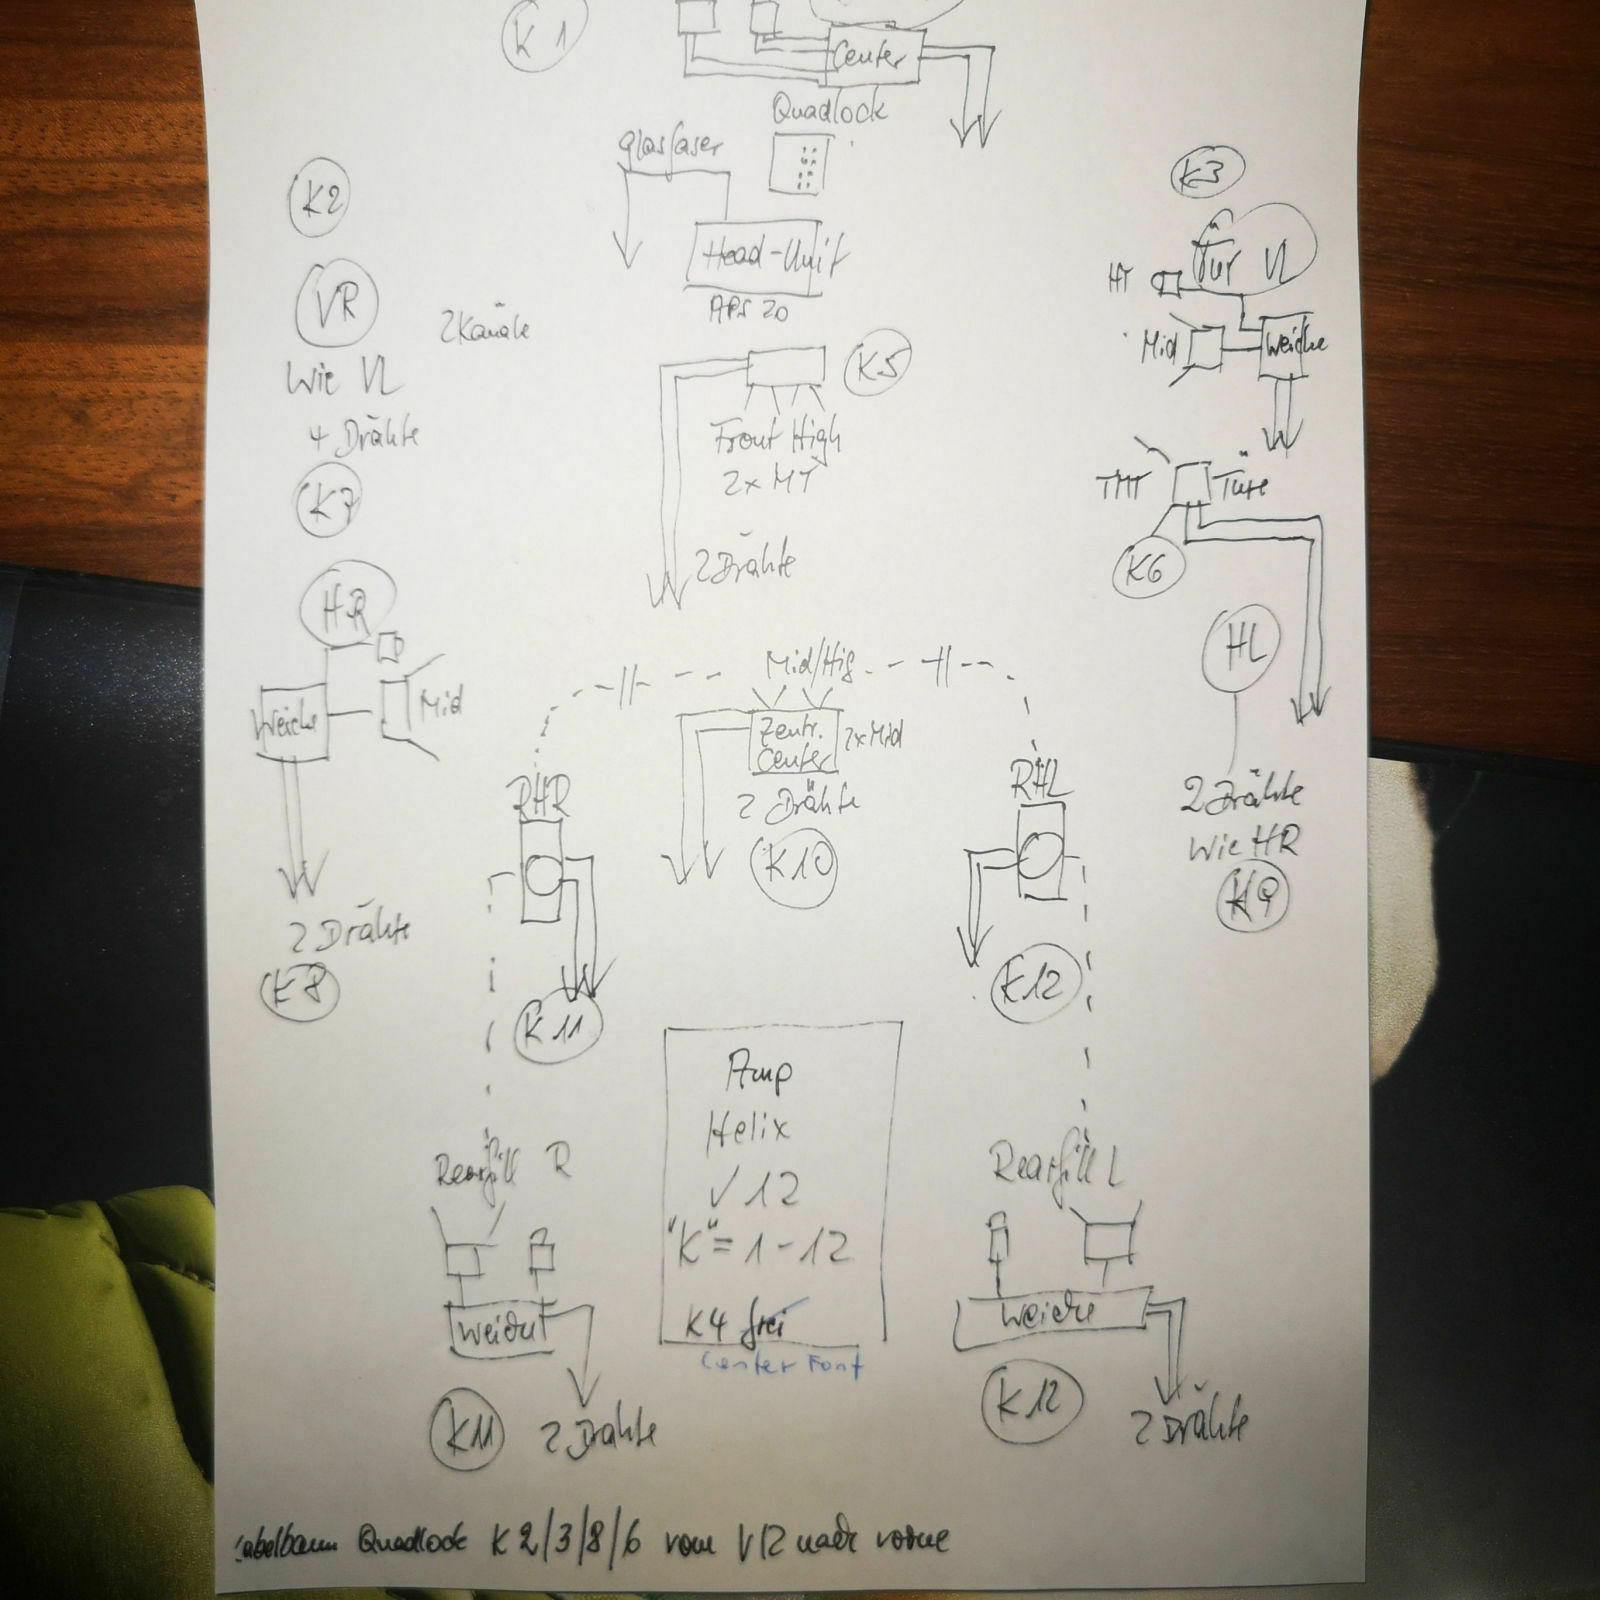 K1
Center
Quadlock
Glasfaser
K2
K3
Head-Unit
APS 20
Tür VL
HT
Mid
Weiche
VR
2 Kanäle
Wie VL
4 Drähte
K5
Front High
2x MT
TMT
Türe
K7
K6
2 Drähte
HR
Weiche
Mid
Mid/Hig
HL
Zentr.
Center
2x Mid
2 Drähte
K10
RHR
RHL
2 Drähte
Wie HR
K9
2 Drähte
K8
K11
K12
Amp
Helix
V12
"K" = 1-12
K4 frei
Center Font
Rearfill R
Weiche
K11
2 Drähte
Rearfill L
Weiche
K12
2 Drähte
Kabelbaum Quadlock K2/3/8/6 vom V12 nach vorne